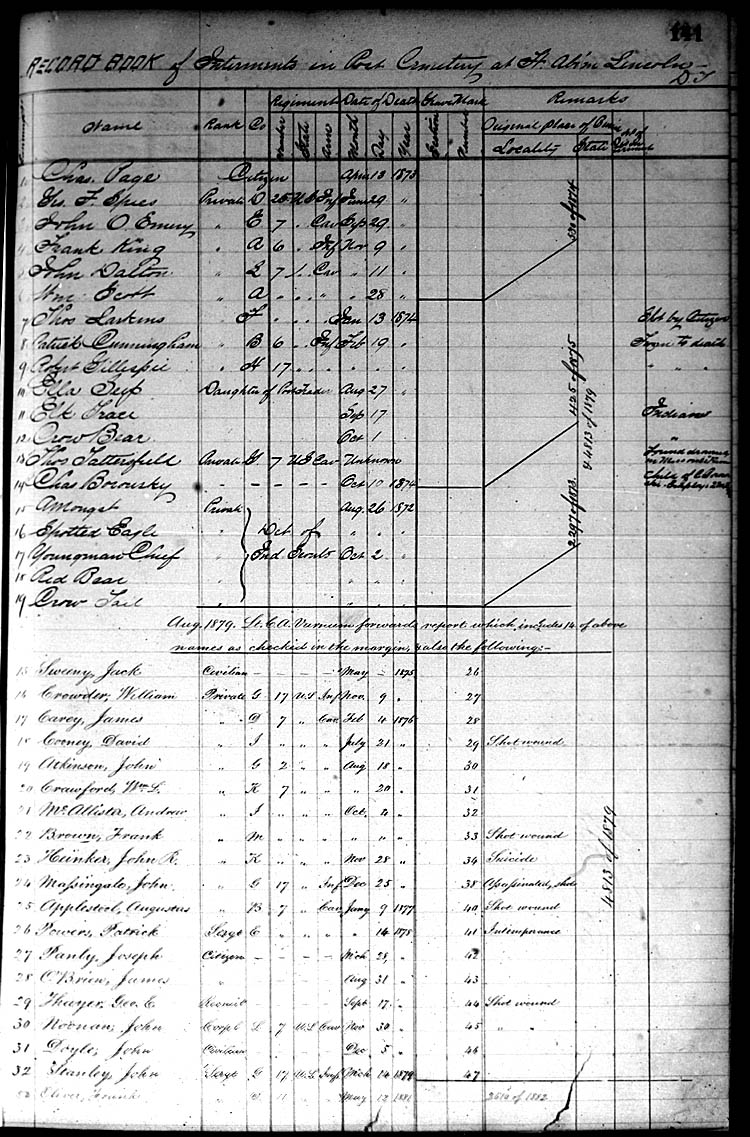 141
RECORD BOOK of Interments in Post Cemetery at Ft. Ab'm Lincoln
D.T
Regiment Date of Death Grave Mark Remarks
Name Rank Co Number State Arm Month Day Year Section Number Original place of
Locality State
1 Chas. Page Citizen April 13 1873
2 Geo. F. Spies Private D 25 U S Inf June 29 "
3 John O. Emery " E 7 " Cav Sep 29 "
4 Frank King " A 6 " Inf Nov 9 "
5 John Dalton " L 7 " Cav " 11 "
6 Wm. Scott " A " " " " 28 "
7 Thos Larkins " F " " " Jan 13 1874 Shot by Citizen
8 Patrick Cunningham " B 6 " Inf Feb 19 " Frozen to death
9 Robert Gillespie " H 17 " " " " " " "
10 Ella Seip Daughter of Post Trader Aug 27 "
11 Elk Face Sep 17 Indian
12 Crow Bear Oct 1 "
13 Thos Tattersfield Private G. 7 U S Cav Unknown Found drowned
14 Chas Borowsky - - - - - Oct 10 1874
15 Amongst Private Aug. 26 1872
16 Spotted Eagle " Det of " " "
17 Youngman Chief " Ind Scouts Oct 2 "
18 Red Bear " " " "
19 Crow Tail " " " "
530 of 1874
425 of 1875
2297 of 1873.
& 4813 of 1879
Aug. 1879. Lt. C. A. Varnum forwards report which includes 14 of above
names as checked in the margin, & also the following:-
15 Sweeny, Jack Civilian - - - - May - 1875 26
16 Crowder, William Private G 17 U.S Inf Nov. 9 " 27
17 Carey, James " D 7 " Cav Feb 4 1876 28
18 Cooney, David " I " " " July 21 " 29 Shot wound
19 Atkinson, John " G 2 " " Aug 18 " 30
20 Crawford, Wm L. " K 7 " " " 20 " 31
21 McAllister, Andrew " I " " " Oct. 4 " 32
22 Brown, Frank " M " " " " " " 33 Shot wound
23 Heinker, John R. " K " " " Nov 28 " 34 Suicide
24 Massingale, John. " G 17 " Inf Dec 25 " 38 Assassinated, shot
25 Applestool, Augustus " B 7 " Cav Jany 9 1877 40 Shot wound
26 Powers, Patrick Sergt E " " " " 14 1878 41 Intemperance
27 Pauly, Joseph Citizen - - - - Mch 28, " 42
28 O'Brien, James " - - - - Aug 31 " 43
29 Thayer, Geo. C. Recruit - - - - Sept 17 " 44 Shot wound
30 Noonan, John Corpl L 7 U.S Cav Nov 30 " 45 " "
31 Doyle, John Civilian - - - - Dec 5 " 46
32 Stanley, John Sergt G 17 U.S Inf Mch 14 1879 47
4813 of 1879
Oliver, Frank " " 11 May 12 1881 of 1882